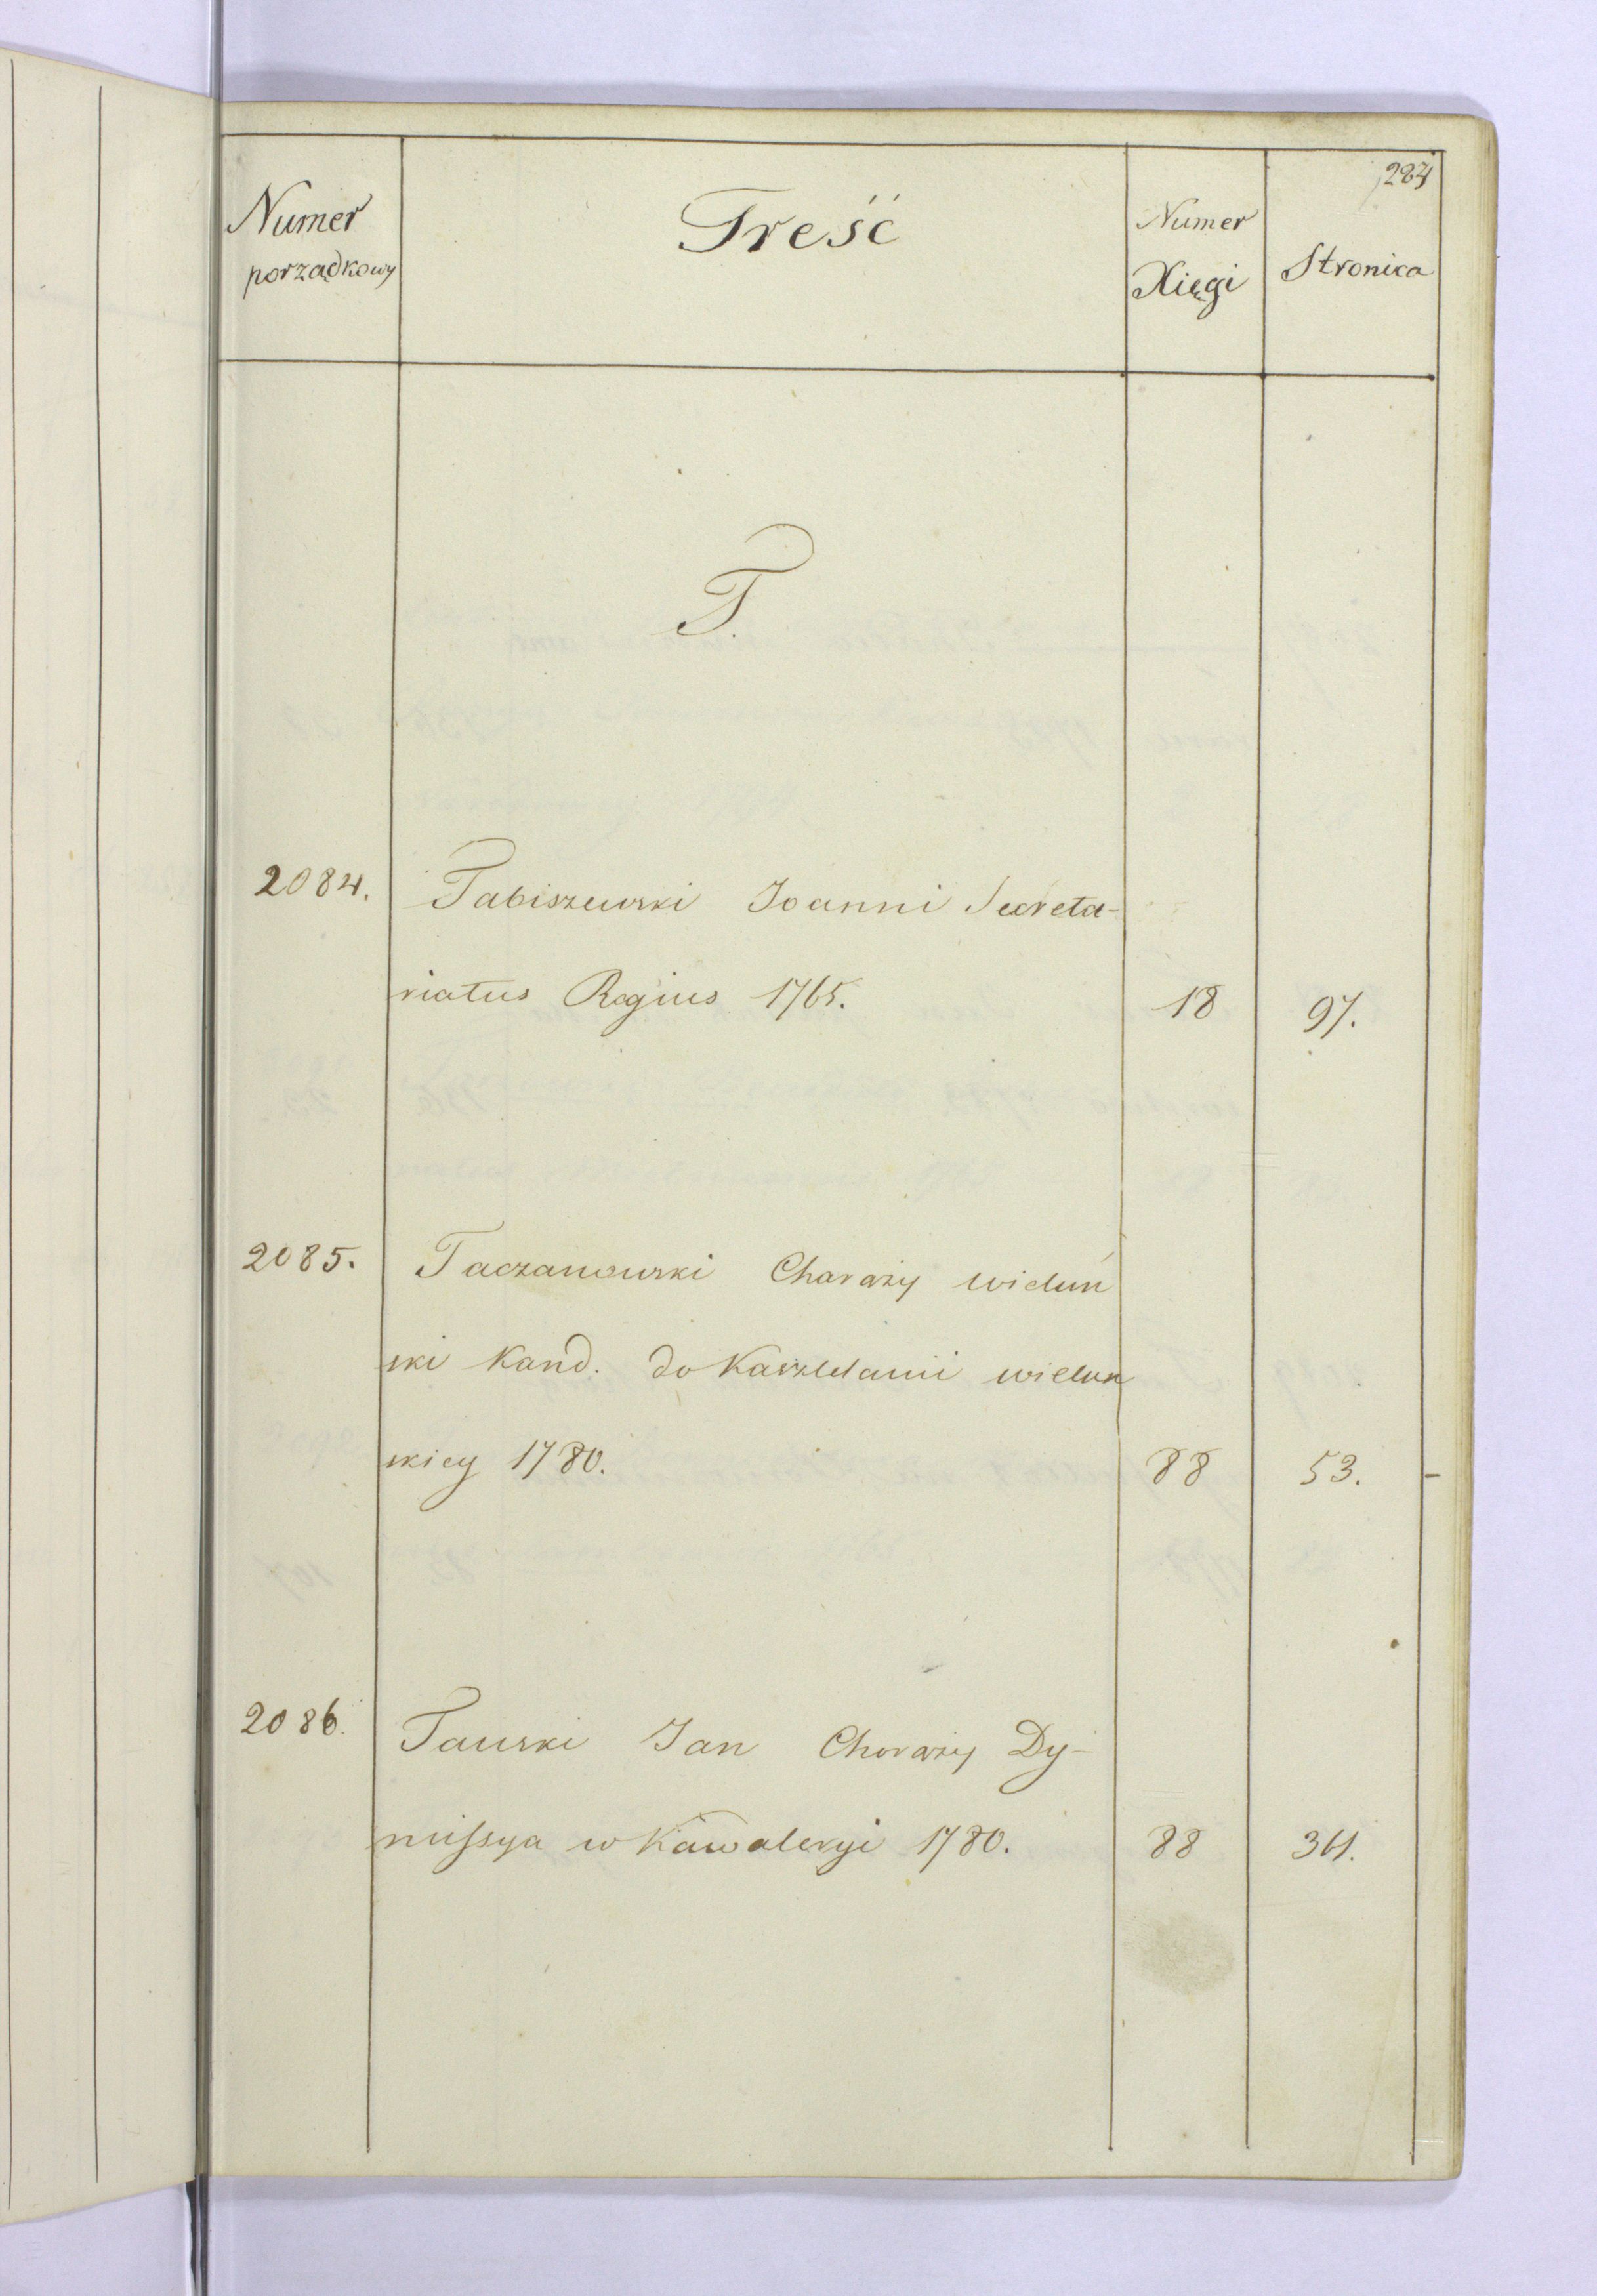 284
Numer
porządkowy
Treść
Numer
Xięgi
Stronica
T.
2084. Tabiszewski Joanni Secreta-
riatus Regius 1765. 18 97.
2085. Taczanowski Chorąży wieluń
ski Kand. do Kasztelanii wielun
skiey 1780. 88 53.
2086. Tański Jan Chorąży Dy-
missya w Kawaleryi 1780. 88